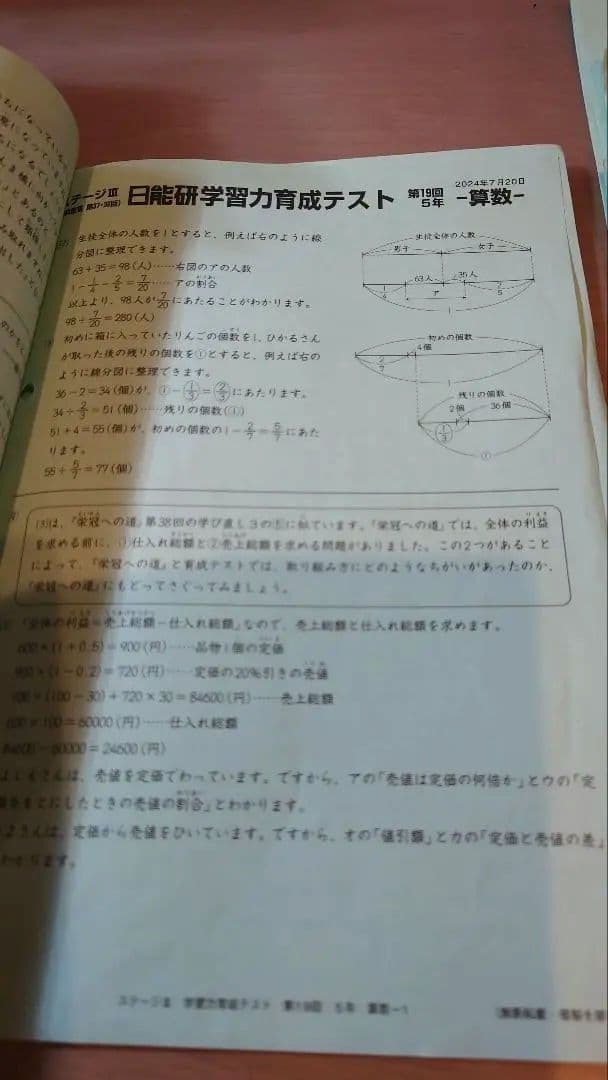 ステージⅢ
日能研学習力育成テスト
第19回
5年
2024年7月20日
-算数-
生徒全体の人数を1とすると、例えば右のように線
分図に整理できます。
63+35=98(人)……右図のアの人数
1-1/4-2/5=7/20……アの割合
以上より、98人が7/20にあたることがわかります。
98÷7/20=280(人)
生徒全体の人数
男子
女子
63人
35人
1/4
ア
2/5
1
初めに箱に入っていたりんごの個数を1、ひかるさん
が取った後の残りの個数を①とすると、例えば右の
ように線分図に整理できます。
36-2=34(個)が、①-(1/3)=(2/3)にあたります。
34÷2/3=51(個)……残りの個数(①)
51+4=55(個)が、初めの個数の1-2/7=5/7にあた
ります。
55÷5/7=77(個)
初めの個数
4個
2/7
1
残りの個数
2個
36個
(1/3)
①
(3)は、「栄冠への道」第38回の学び直し3の⑤に似ています。「栄冠への道」では、全体の利益
を求める前に、①仕入れ総額と②売上総額を求める問題がありました。この2つがあること
によって、「栄冠への道」と育成テストでは、取り組み方にどのようなちがいがあったのか、
「栄冠への道」にもどってさぐってみましょう。
「全体の利益=売上総額-仕入れ総額」なので、売上総額と仕入れ総額を求めます。
600×(1+0.5)=900(円)……品物1個の定価
900×(1-0.2)=720(円)……定価の20%引きの売値
900×(100-30)+720×30=84600(円)……売上総額
600×100=60000(円)……仕入れ総額
84600-60000=24600(円)
よしもさんは、売値を定価でわっています。ですから、アの「売値は定価の何倍か」とウの「定
をもとにしたときの売値の割合」とわかります。
さんは、定価から売値をひいています。ですから、オの「値引額」とカの「定価と売値の差」
わかります。
ステージⅢ 学習力育成テスト 第19回 5年 算数-1